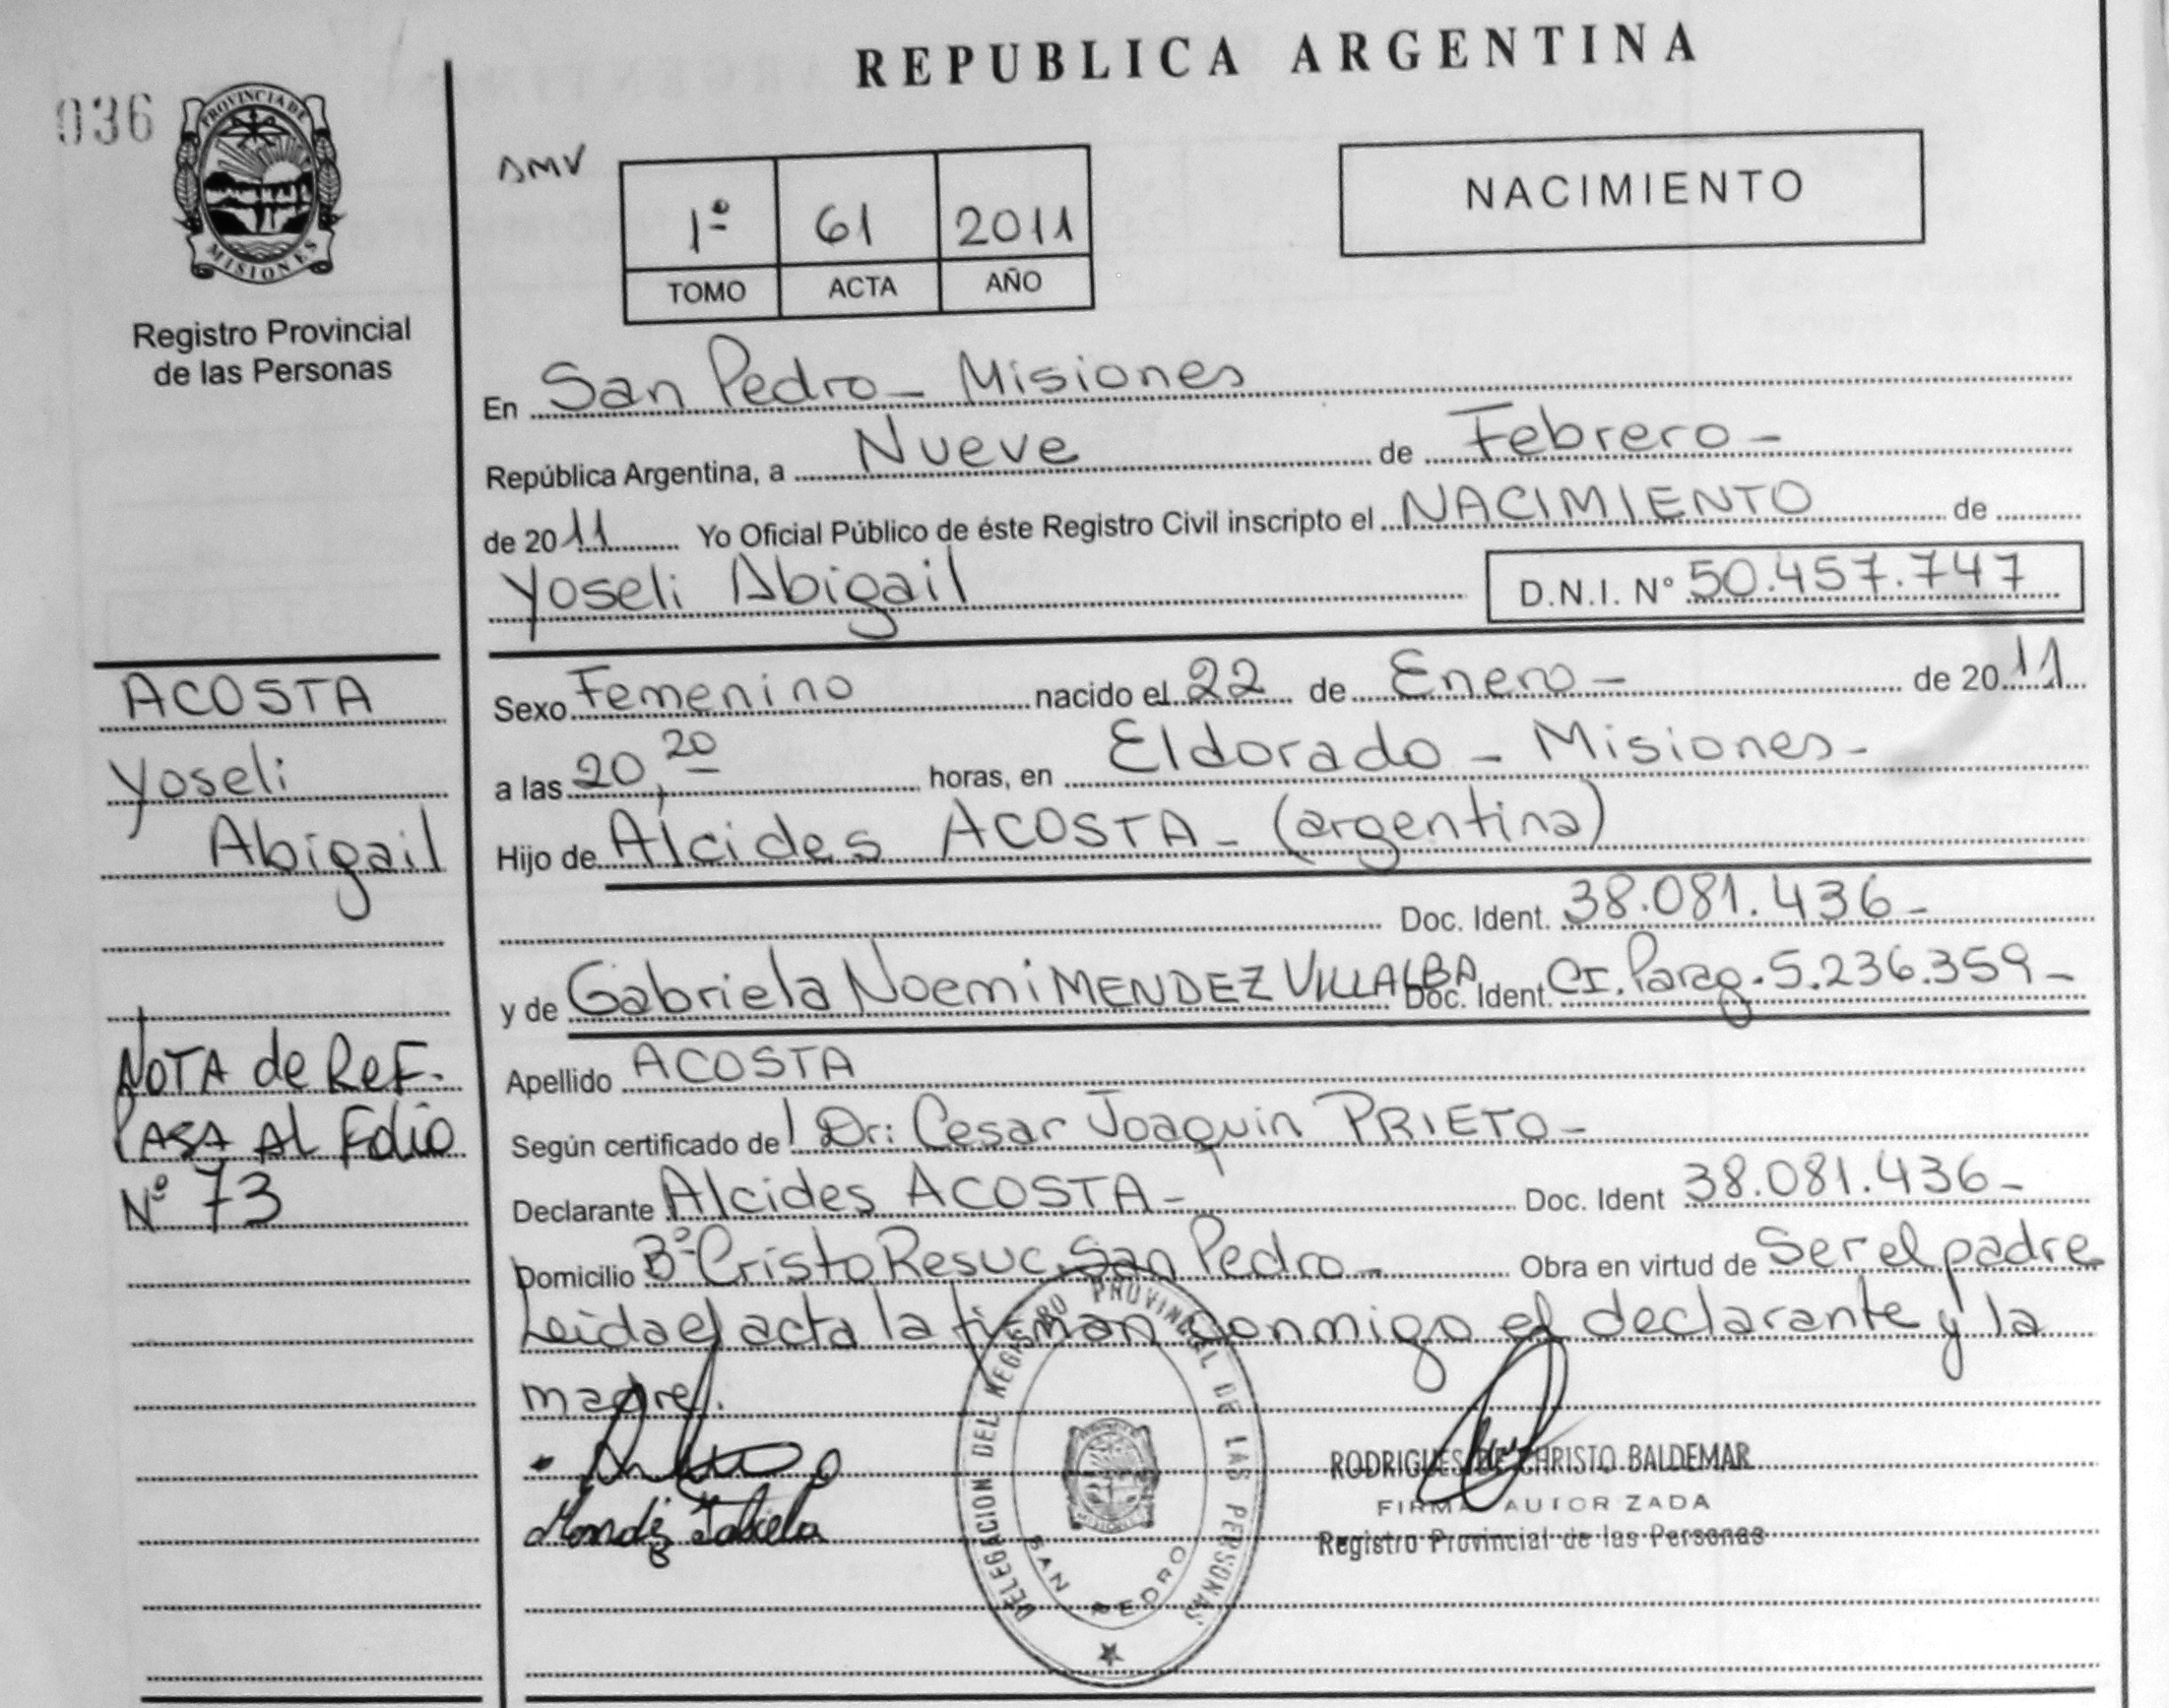 REPUBLICA ARGENTINA
036
PROVINCIA DE
MISIONES
Registro Provincial
de las Personas
AMV
1º 61 2011
TOMO ACTA AÑO
NACIMIENTO
En San Pedro - Misiones
República Argentina, a Nueve de Febrero -
de 2011 Yo Oficial Público de éste Registro Civil inscripto el NACIMIENTO de
Yoseli Abigail D.N.I. Nº 50.457.747
ACOSTA
Yoseli
Abigail
Sexo Femenino nacido el 22 de Enero - de 2011
a las 20,20 horas, en Eldorado - Misiones -
Hijo de Alcides ACOSTA - (argentina)
Doc. Ident. 38.081.436 -
y de Gabriela Noemi MENDEZ VILLALBA Doc. Ident. CI. Parag. 5.236.359 -
NOTA de ReF.
PASA Al Folio
Nº 73
Apellido ACOSTA
Según certificado de Dr: Cesar Joaquin PRIETO -
Declarante Alcides ACOSTA - Doc. Ident 38.081.436 -
Domicilio Bº Cristo Resuc. San Pedro - Obra en virtud de Ser el padre
Leida el acta la firman conmigo el declarante y la
madre.
Mendez Gabriela
DELEGACION DEL REGISTRO PROVINCIAL DE LAS PERSONAS
SAN PEDRO
RODRIGUES DE CHRISTO BALDEMAR
FIRMA AUTORIZADA
Registro Provincial de las Personas